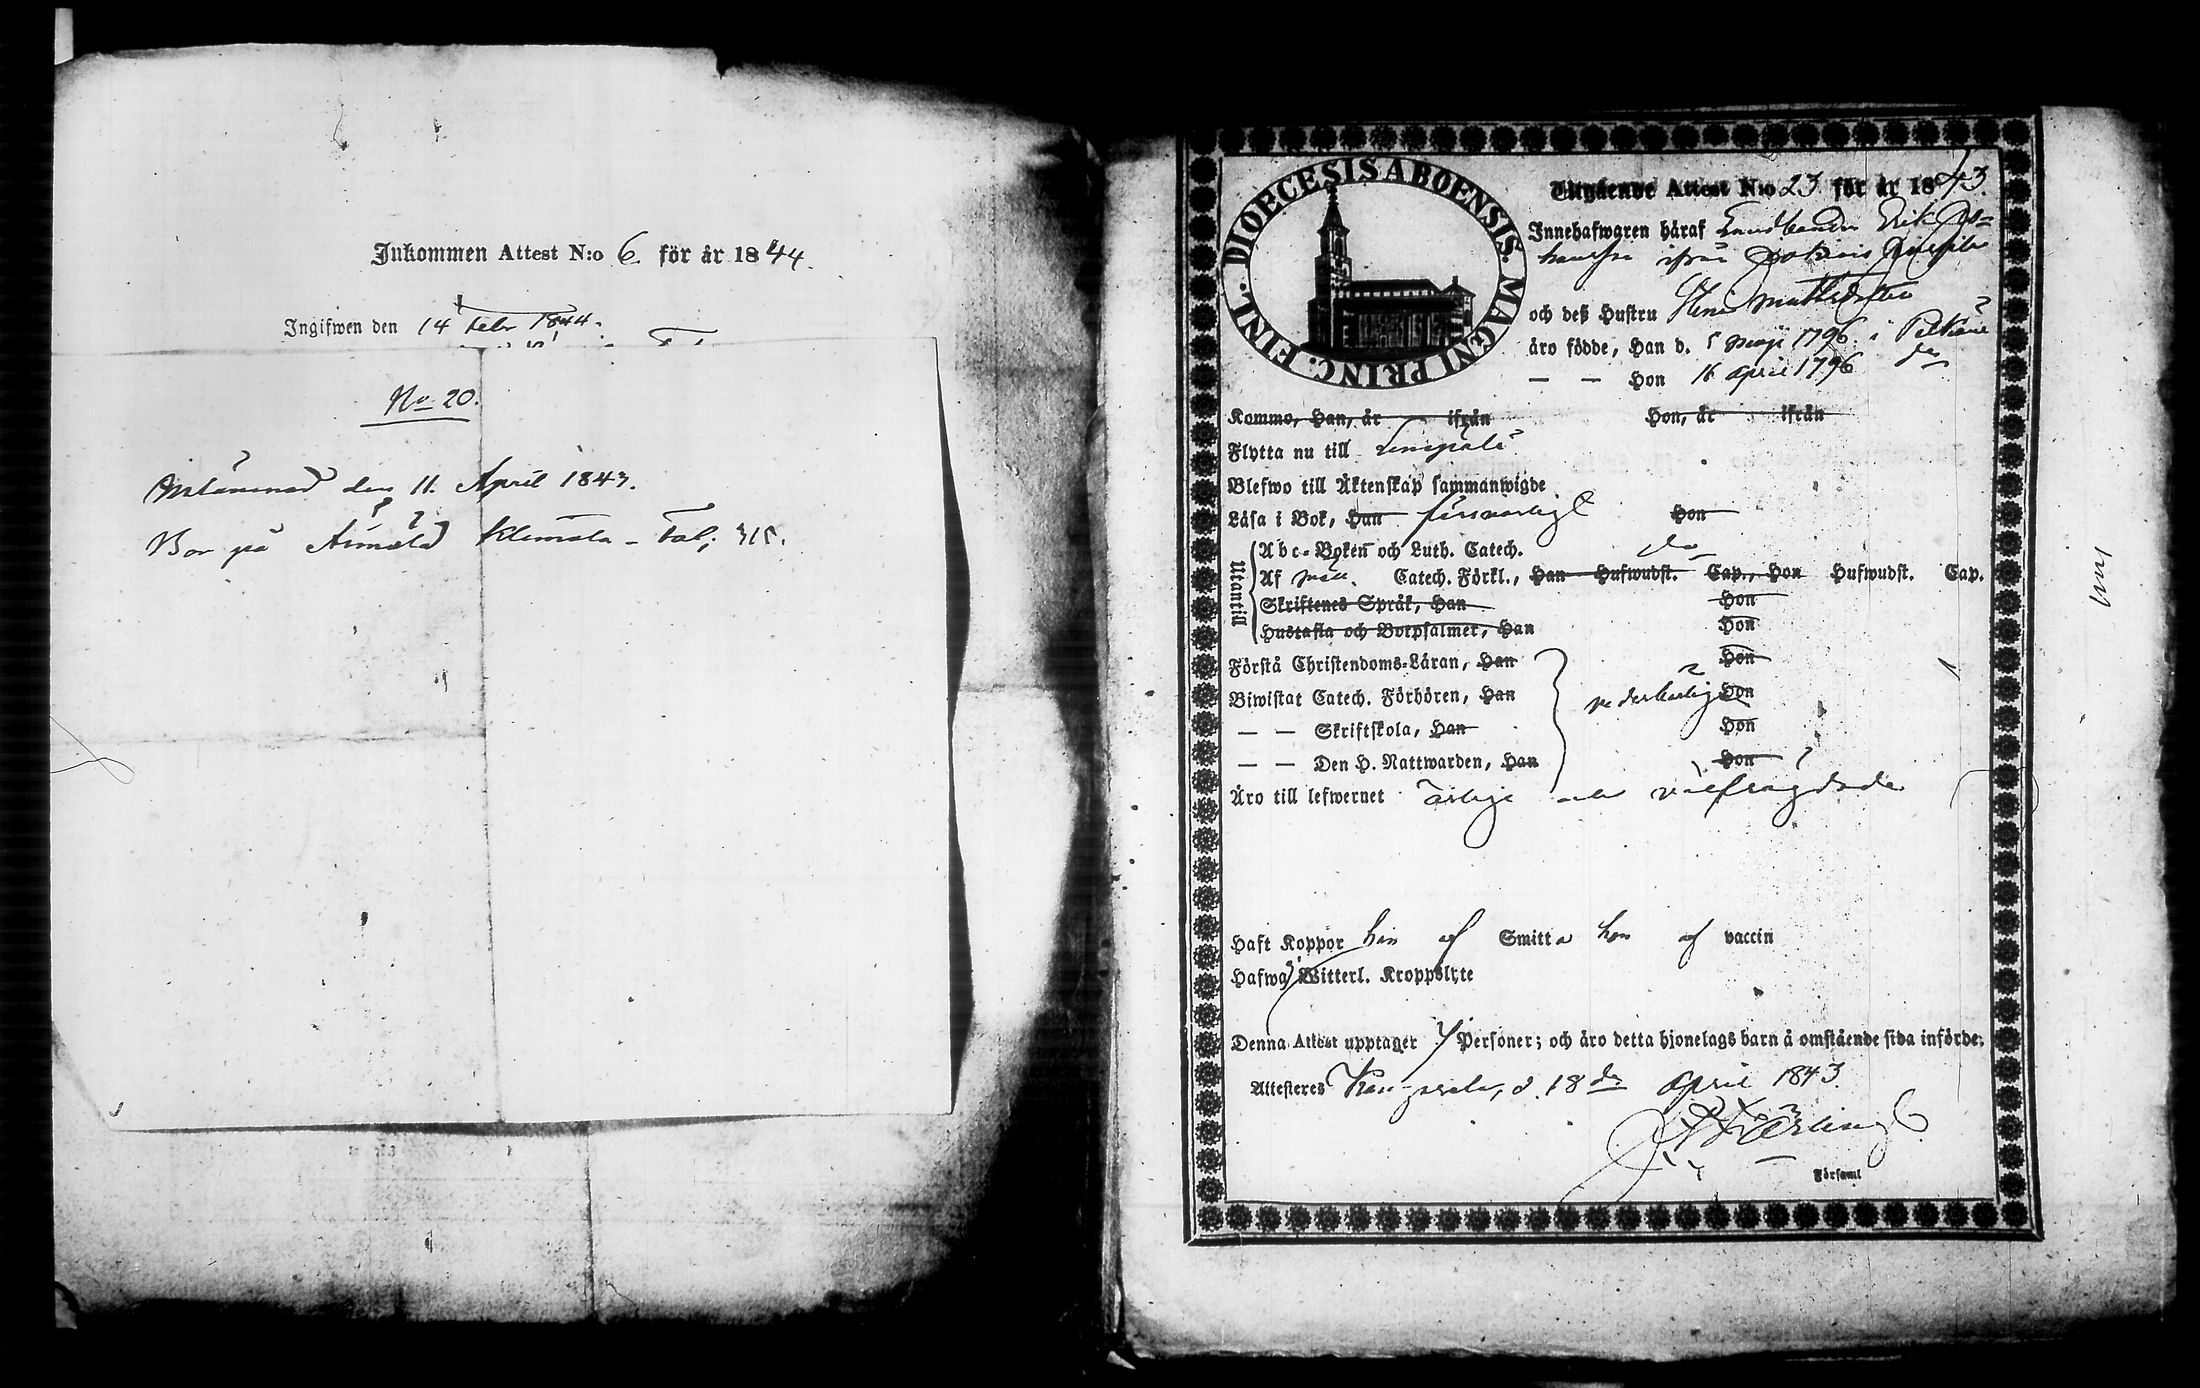 Inkommen Attest N:o 6 för år 1844.
Ingifwen den 14 Febr 1844.
No 20.
Anlämnad den 11. April 1843.
Bor på Annala Klemola - Fol; 315.
DIOECESIS ABOENSIS. MAGNI PRINC. FINL.
Utgående Attest N:o 23 för år 1843.
Innehafwaren häraf Landbonden Erik Jo=
hansson ifrån
och deß Hustru Stina Mattsdotter
äro födde, Han d. 5 Maji 1796. i Pelkäne
— — Hon 16 April 1796 do
Kommo, Han, år ifrån Hon, år ifrån
Flytta nu till Lempälä
Blefwo till Äktenskap sammanwigde
Läsa i Bok, Han försvarligt Hon
Utantill
Abc-Boken och Luth. Catech. do
Af Catech. Förkl., Han Hufwudst. Cap., Hon Hufwudst. Cap.
Skriftenes Språk, Han Hon
Hustafla och Botpsalmer, Han Hon
Förstå Christendoms-Läran, Han Hon
Biwistat Catech. Förhören, Han vederbörligen Hon
— — Skriftskola, Han Hon
— — Den H. Nattwarden, Han Hon
Äro till lefwernet ärlige och välfrägdade
Haft Koppor han af Smitta hon af vaccin
Hafwa Witterl. Kroppslyte
Denna Attest upptager 7 Personer; och äro detta hjonelags barn å omstående sida införde.
Attesteres Kangasala, d. 18de April 1843.
Församl